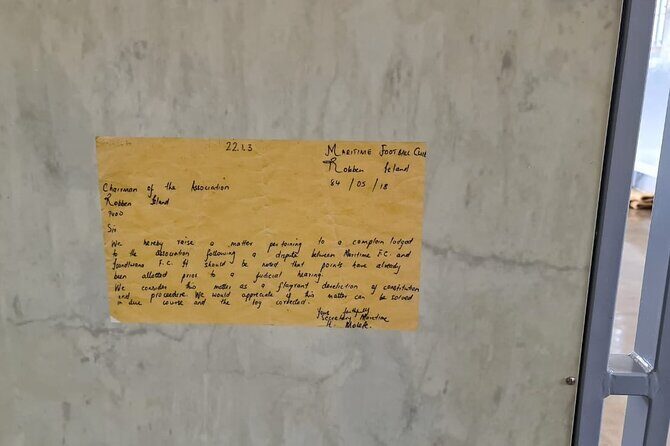 22.1.3
MARITIME FOOTBALL CLUB
Robben Island
84 / 05 / 18
Chairman of the Association
Robben Island
7400
Sir
We hereby raise a matter pertaining to a complain lodged
to the association following a dispute between Maritime F.C. and
F.C. It should be noted that points have already
been allotted prior to a judicial hearing.
We consider this matter as a flagrant dereliction of constitution
and procedure. We would appreciate if this matter can be solved
in due course and the log corrected.
faithfully
Secretary Maritime